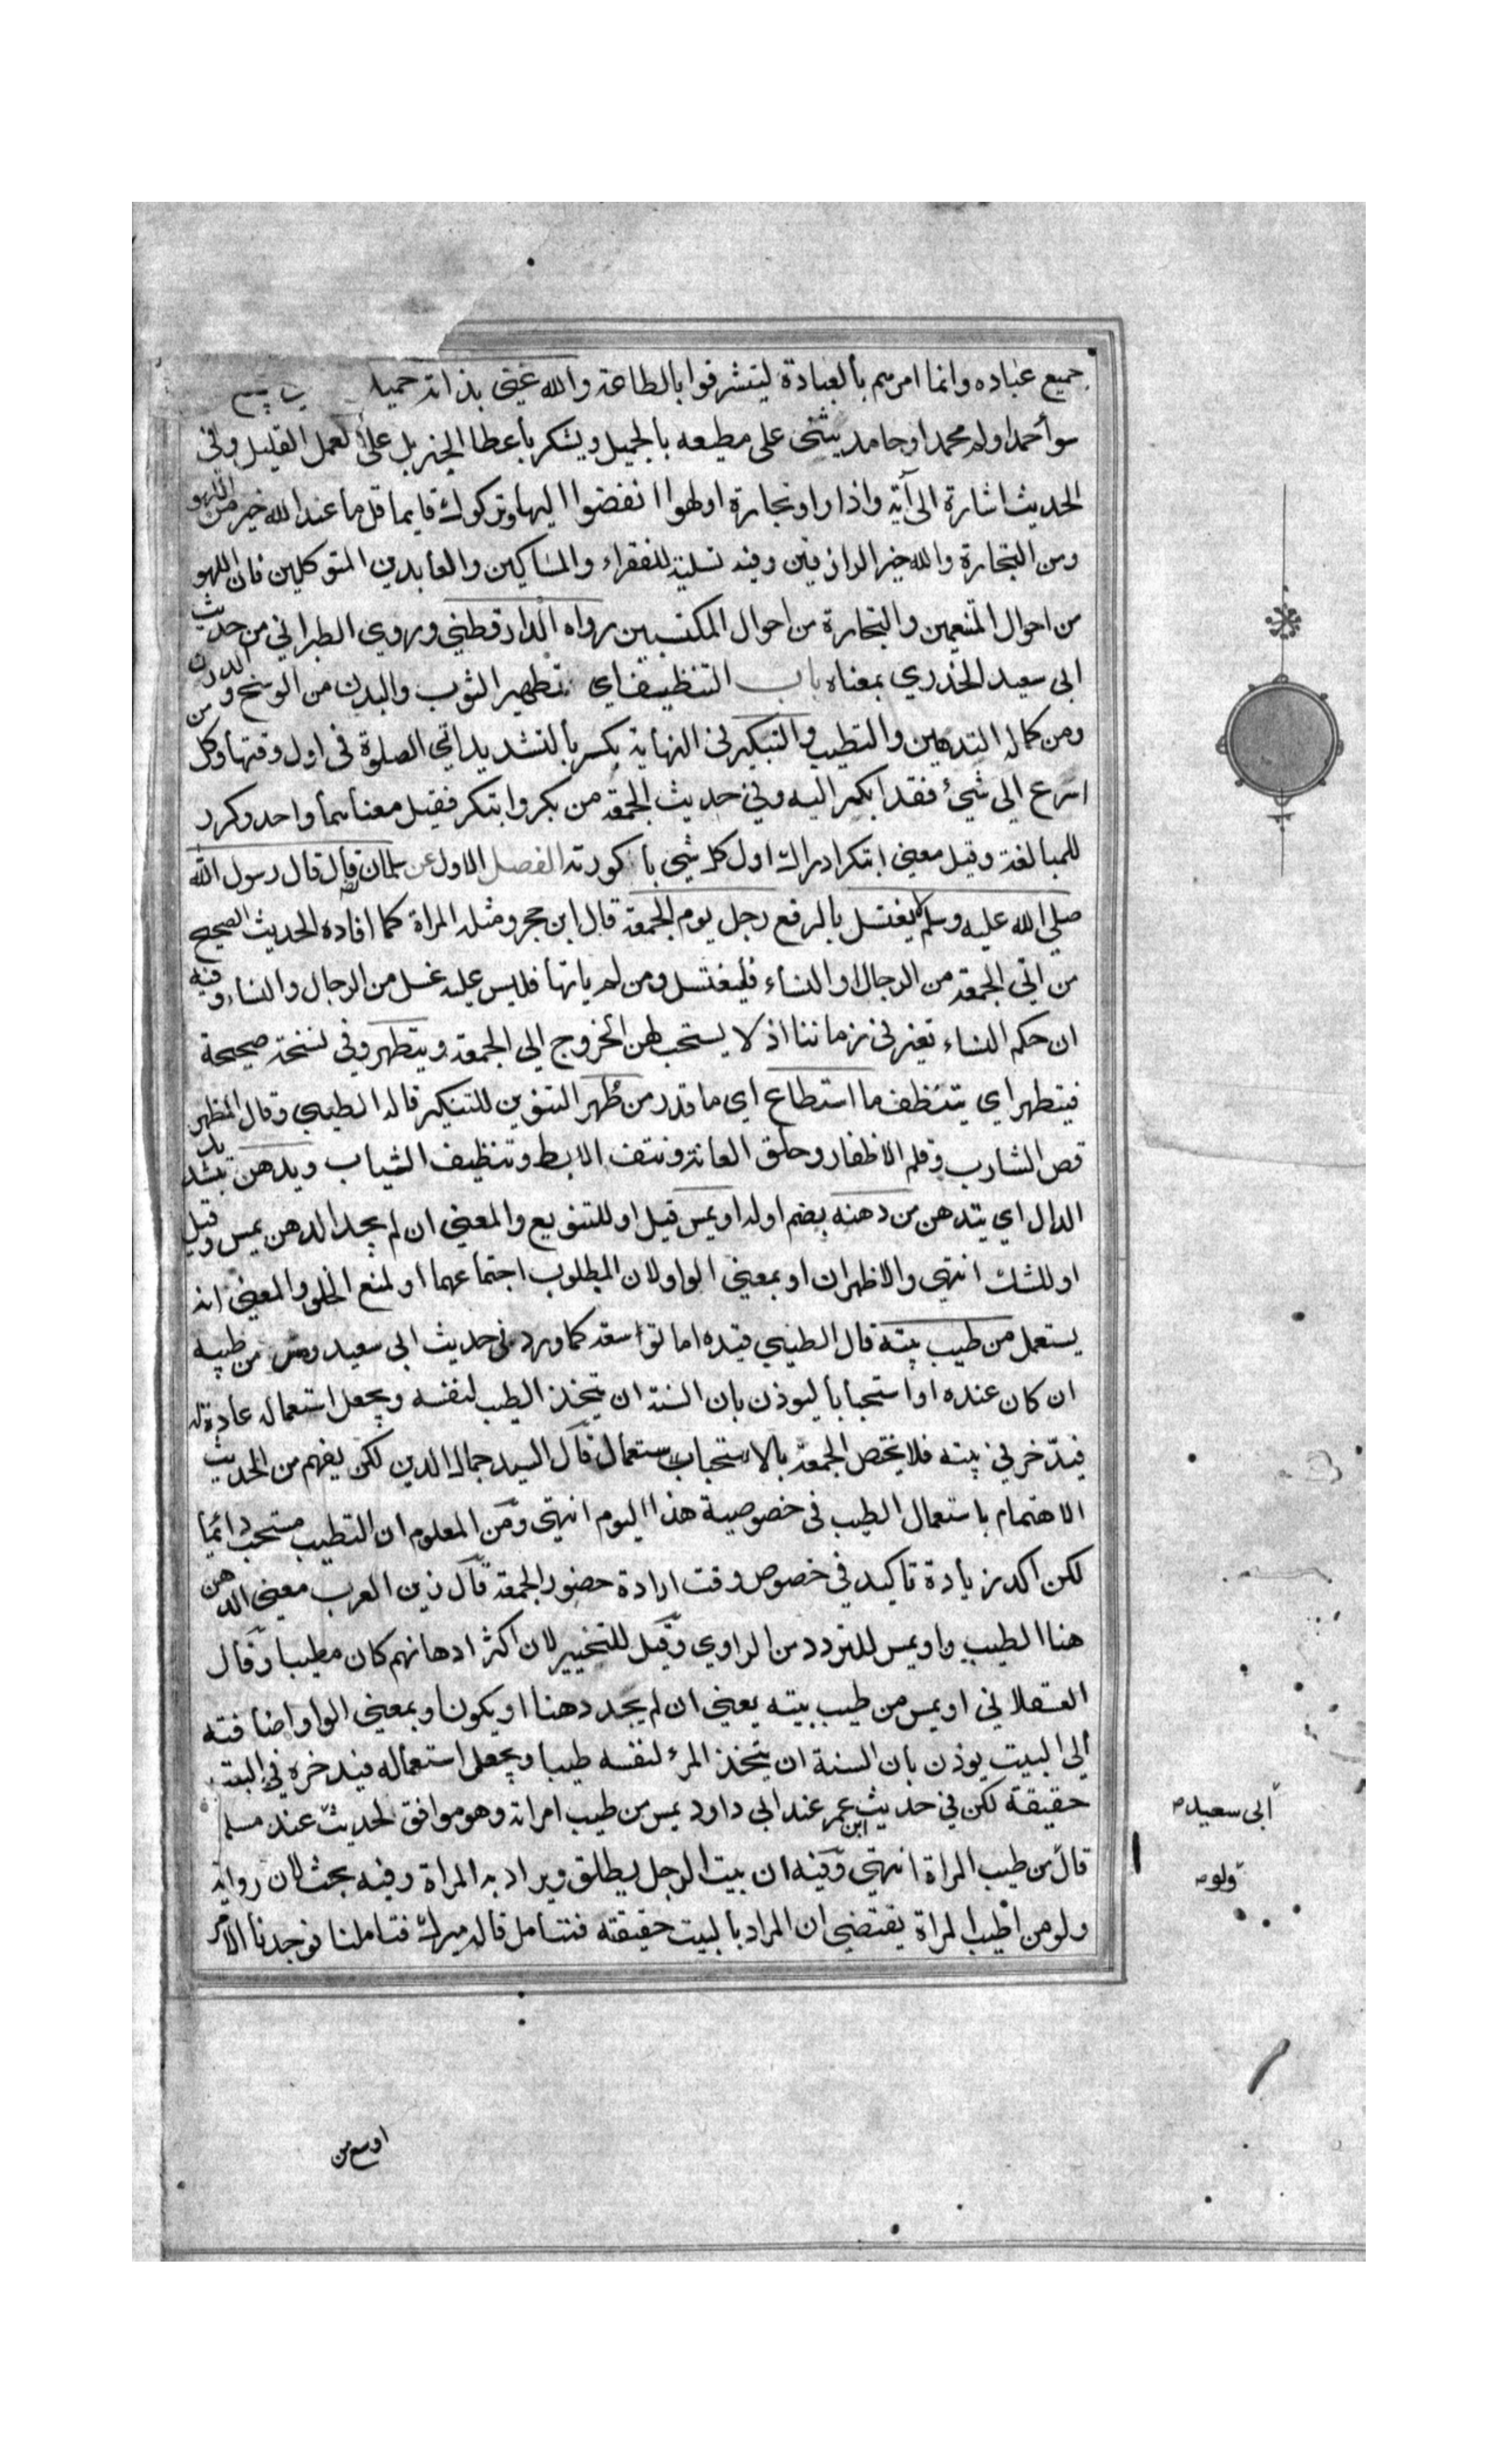 جميع عباده وانما امرهم بالعبادة ليتشرفوا بالطاعة والله غني بذاته حميد
سواء حمد او لم يحمد او حامد يثنى على مطيعه بالجميل ويشكر باعطا الجزيل على العمل القليل وفي
الحديث اشارة الى آية واذا راوا تجارة او لهوا انفضوا اليها وتركوك قايما قل ما عند الله خير من اللهو
ومن التجارة والله خير الرازقين وفيه تسلية للفقراء والمساكين والعابدين المتوكلين فان اللهو
من احوال المتنعمين والتجارة من احوال المكتسبين رواه الدارقطني وروى الطبراني من حديث
ابي سعيد الخذري بمعناه باب التنظيف اي تطهير الثوب والبدن من الوسخ والدرن
ومن كماله التدهين والتطيب والتبكير في النهاية بكر بالتشديد اتى الصلوة في اول وقتها وكل من
اسرع الي شئ فقد ابكر اليه وفي حديث الجمعة من بكر وابتكر فقيل معناهما واحد وكرر
للمبالغة وقيل معنى ابتكر ادراك اول كل شي باكورته الفصل الاول عن سلمان قال قال رسول الله
صلي الله عليه وسلم لا يغتسل بالرفع رجل يوم الجمعة قال ابن حجر ومثله المراة كما افاده الحديث الصحيح
من اتي الجمعة من الرجال او النساء فليغتسل ومن لم ياتها فليس عليه غسل من الرجال والنساء وفيه
ان حكم النساء تغير في زماننا اذ لا يستحب لهن الخروج الي الجمعة ويتطهر وفي نسخة صحيحة
فيتطهر اي يتنظف ما استطاع اي ما قدر من طهر التنوين للتنكير قاله الطيبي وقال المظهر
قص الشارب وقلم الاظفار وحلق العانة ونتف الابط وتنظيف الثياب ويدهن بتشديد
الدال اي يتدهن من دهنه بضم اوله او يمس قيل او للتنويع والمعني ان لم يجد الدهن يمس وقيل
او للشك انتهي والاظهر ان او بمعني الواو لان المطلوب اجتماعهما او لمنع الخلو والمعني انه
يستعمل من طيب بيته قال الطيبي قيده اما توسعة كما ورد في حديث ابي سعيد ومس من طيبه
ان كان عنده او استحبابا ليوذن بان السنة ان يتخذ الطيب لنفسه ويجعل استعماله عادة له
فيدخر في بيته فلا يختص الجمعة بالاستحباب ستعمال قال السيد جمال الدين لكن يفهم من الحديث
الاهتمام باستعمال الطيب في خصوصية هذا اليوم انتهي ومن المعلوم ان التطيب مستحب دائما
لكن اكد زيادة تاكيد في خصوص وقت ارادة حضور الجمعة قال زين العرب معني الدهن
هنا الطيب واو يمس للتردد من الراوي وقيل للتخيير لان اكثر ادهانهم كان مطيبا وقال
العسقلاني او يمس من طيب بيته يعني ان لم يجد دهنا او يكون او بمعني الواو اضافته
الي البيت يوذن بان السنة ان يتخذ المرء لنفسه طيبا ويجعل استعماله فيدخره في البيت
حقيقة لكن في حديث ابن عمر عند ابي داود يمس من طيب امراته وهو موافق لحديث عند مسلم
قال من طيب المراة انتهي وفيه ان بيت الرجل يطلق ويراد به المراة وفيه بحث لان رواية
ولو من طيب المراة يقتضي ان المراد بالبيت حقيقته فتامل قاله ميرك فتاملنا فوجدنا الامر
ابي سعيد
ولو
اوسع من